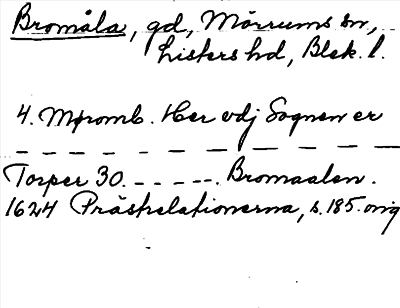 Bromåla, gd, Mörrums sn,
Listers hd, Blek. l.
4. Mörromb. Her vdj Sognen er
— — — — — — — — — — —
Torper 30. - - - - - . Bromaalen.
1624 Prästrelationerna, s. 185. orig